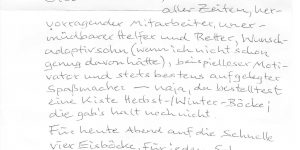 aller Zeiten, her-
vorragender Mitarbeiter, uner-
müdbarer Helfer und Retter, Wunsch-
adoptivsohn (wenn ich nicht schon
genug davon hätte), beispielloser Moti-
vator und stets bestens aufgelegter
Spaßmacher — naja, du bestelltest
eine Kiste Herbst-/Winter-Böcke;
die gab's halt noch nicht.
Für heute Abend auf die Schnelle
vier Eisböcke, für jeden